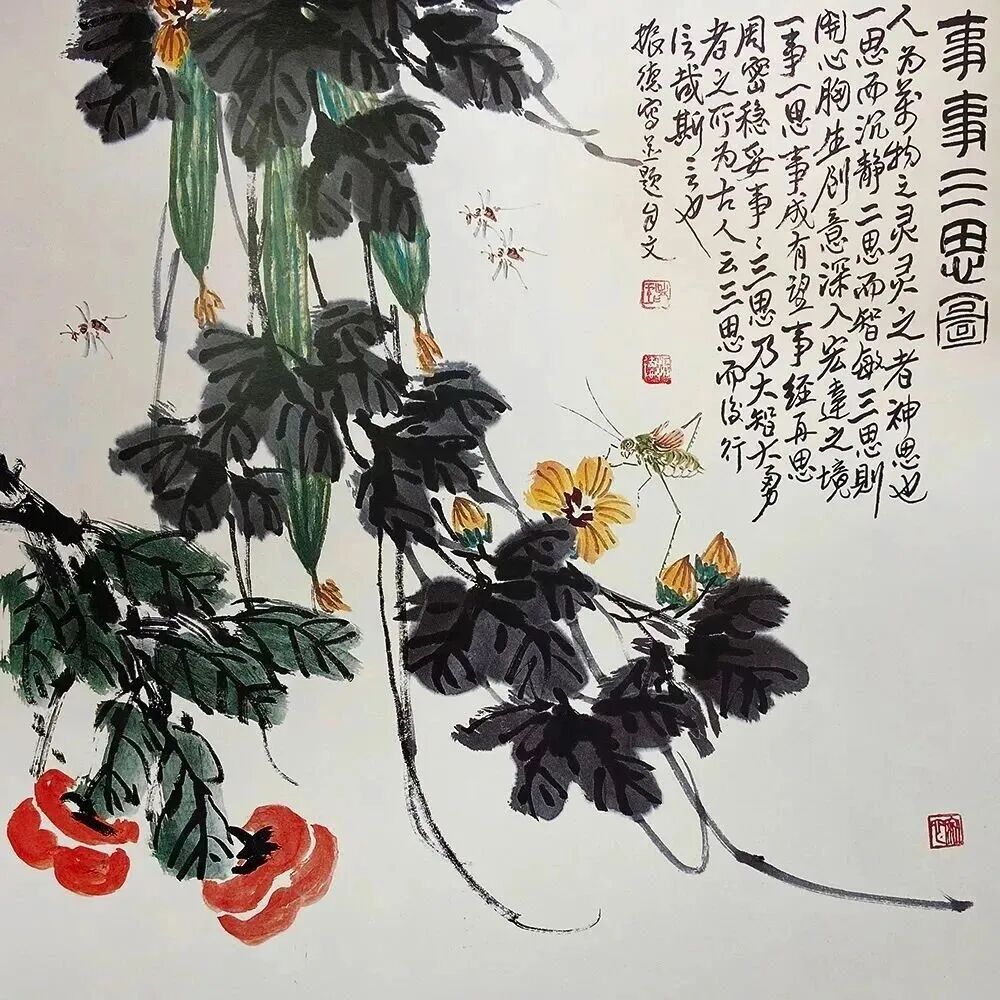 事事三思圖
人为萬物之灵灵之者神思也
一思而沉静二思而智敏三思則
開心胸生創意深入宏達之境
一事一思事成有望事經再思
周密稳妥事〻三思乃大智大勇
者之所为古人云三思而後行
信哉斯言也
振德寫並題自文